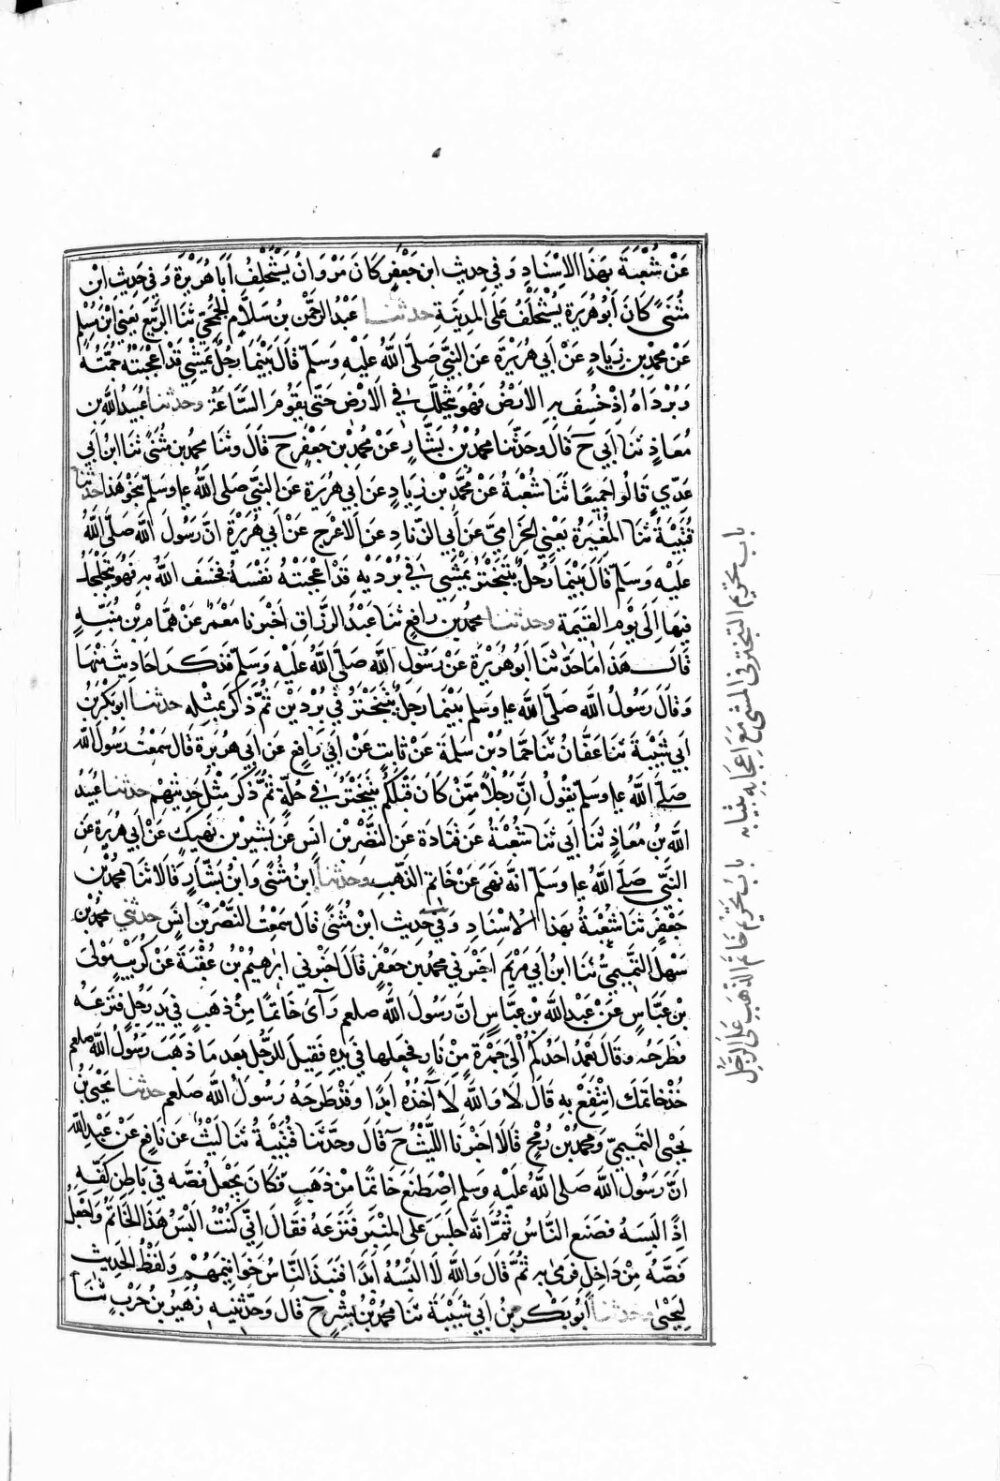 عَنْ شُعْبَةَ بِهَذَا الْاِسْنَادِ وَفِي حَدِيثِ ابْنِ جَعْفَرٍ كَانَ مَرْوَانُ يَسْتَخْلِفُ أَبَا هُرَيْرَةَ وَفِي حَدِيثِ ابْنِ
مُثَنًّى كَانَ أَبُو هُرَيْرَةَ يُسْتَخْلَفُ عَلَى الْمَدِينَةِ حدثنا عَبْدُ الرَّحْمٰنِ بْنُ سَلَّامٍ الْجُمَحِيُّ ثَنَا الرَّبِيعُ يَعْنِي ابْنَ مُسْلِمٍ
عَنْ مُحَمَّدِ بْنِ زِيَادٍ عَنْ أَبِي هُرَيْرَةَ عَنِ النَّبِيِّ صَلَّى اللَّهُ عَلَيْهِ وَسَلَّمَ قَالَ بَيْنَمَا رَجُلٌ يَمْشِي قَدْ أَعْجَبَتْهُ جُمَّتُهُ
وَبُرْدَاهُ إِذْ خُسِفَ بِهِ الْأَرْضُ فَهُوَ يَتَجَلْجَلُ فِي الْأَرْضِ حَتَّى يَقُومَ السَّاعَةُ وحدثنا عُبَيْدُ اللَّهِ بْنُ
مُعَاذٍ ثَنَا أَبِي ح قَالَ وَحَدَّثَنَا مُحَمَّدُ بْنُ بَشَّارٍ عَنْ مُحَمَّدِ بْنِ جَعْفَرٍ ح قَالَ وَثَنَا مُحَمَّدُ بْنُ مُثَنًّى ثَنَا ابْنُ أَبِي
عَدِيٍّ قَالُوا جَمِيعًا ثَنَا شُعْبَةُ عَنْ مُحَمَّدِ بْنِ زِيَادٍ عَنْ أَبِي هُرَيْرَةَ عَنِ النَّبِيِّ صَلَّى اللَّهُ ع‍ل وَسَلَّمَ بِنَحْوِ هَذَا حدثنا
قُتَيْبَةُ ثَنَا الْمُغِيرَةُ يَعْنِي الْحِزَامِيَّ عَنْ أَبِي الزِّنَادِ عَنِ الْأَعْرَجِ عَنْ أَبِي هُرَيْرَةَ اَنَّ رَسُولَ اللَّهِ صَلَّى اللَّهُ
عَلَيْهِ وَسَلَّمَ قَالَ بَيْنَمَا رَجُلٌ يَتَبَخْتَرُ يَمْشِي فِي بُرْدَيْهِ قَدْ اَعْجَبَتْهُ نَفْسُهُ فَخَسَفَ اللَّهُ بِهِ فَهُوَ يَتَجَلْجَلُ
فِيهَا اِلَى يَوْمِ الْقِيٰمَةِ وحدثنا مُحَمَّدُ بْنُ رَافِعٍ ثَنَا عَبْدُ الرَّزَّاقِ اَخْبَرَنَا مَعْمَرٌ عَنْ هَمَّامِ بْنِ مُنَبِّهٍ
قَالَ هَذَا مَا حَدَّثَنَا اَبُو هُرَيْرَةَ عَنْ رَسُولِ اللَّهِ صَلَّى اللَّهُ عَلَيْهِ وَسَلَّمَ فَذَكَرَ اَحَادِيثَ مِنْهَا
وَقَالَ رَسُولُ اللَّهِ صَلَّى اللَّهُ ع‍ل وَسَلَّمَ بَيْنَمَا رَجُلٌ يَتَبَخْتَرُ فِي بُرْدَيْنِ ثُمَّ ذَكَرَ بِمِثْلِهِ حدثنا اَبُو بَكْرِ بْنُ
اَبِي شَيْبَةَ ثَنَا عَفَّانُ ثَنَا حَمَّادُ بْنُ سَلَمَةَ عَنْ ثَابِتٍ عَنْ اَبِي رَافِعٍ عَنْ اَبِي هُرَيْرَةَ قَالَ سَمِعْتُ رَسُولَ اللَّهِ
صَلَّى اللَّهُ ع‍ل وَسَلَّمَ يَقُولُ اِنَّ رَجُلًا مِمَّنْ كَانَ قَبْلَكُمْ يَتَبَخْتَرُ فِي حُلَّةٍ ثُمَّ ذَكَرَ مِثْلَ حَدِيثِهِمْ حدثنا عُبَيْدُ
اللَّهِ بْنُ مُعَاذٍ ثَنَا اَبِي ثَنَا شُعْبَةُ عَنْ قَتَادَةَ عَنِ النَّضْرِ بْنِ اَنَسٍ عَنْ بَشِيرِ بْنِ نَهِيكٍ عَنْ أَبِي هُرَيْرَةَ عَنِ
النَّبِيِّ صَلَّى اللَّهُ ع‍ل وَسَلَّمَ اَنَّهُ نَهَى عَنْ خَاتَمِ الذَّهَبِ وحدثنا ابْنُ مُثَنًّى وَابْنُ بَشَّارٍ قَالَا ثَنَا مُحَمَّدُ بْنُ
جَعْفَرٍ ثَنَا شُعْبَةُ بِهَذَا الْاِسْنَادِ وَفِي حَدِيثِ ابْنِ مُثَنًّى قَالَ سَمِعْتُ النَّضْرَ بْنَ اَنَسٍ حدثني مُحَمَّدُ بْنُ
سَهْلٍ التَّمِيمِيُّ ثَنَا ابْنُ اَبِي مَرْيَمَ اَخْبَرَنِي مُحَمَّدُ بْنُ جَعْفَرٍ قَالَ اَخْبَرَنِي اِبْرٰهِيمُ بْنُ عُقْبَةَ عَنْ كُرَيْبٍ مَوْلَى
بْنِ عَبَّاسٍ عَنْ عَبْدِ اللَّهِ بْنِ عَبَّاسٍ اَنَّ رَسُولَ اللَّهِ صلعم رَآى خَاتَمًا مِنْ ذَهَبٍ فِي يَدِ رَجُلٍ فَنَزَعَهُ
فَطَرَحَهُ وَقَالَ يَعْمِدُ اَحَدُكُمْ اِلَى جَمْرَةٍ مِنْ نَارٍ فَيَجْعَلُهَا فِي يَدِهِ فَقِيلَ لِلرَّجُلِ بَعْدَ مَا ذَهَبَ رَسُولُ اللَّهِ صلعم
خُذْ خَاتَمَكَ انْتَفِعْ بِهِ قَالَ لَا وَاللَّهِ لَا آخُذُهُ اَبَدًا وَقَدْ طَرَحَهُ رَسُولُ اللَّهِ صلعم حدثنا يَحْيَى بْنُ
يَحْيَى التَّمِيمِيُّ وَمُحَمَّدُ بْنُ رُمْحٍ قَالَا اَخْبَرَنَا اللَّيْثُ ح قَالَ وَحَدَّثَنَا قُتَيْبَةُ ثَنَا لَيْثٌ عَنْ نَافِعٍ عَنْ عَبْدِ اللَّهِ
اَنَّ رَسُولَ اللَّهِ صَلَّى اللَّهُ عَلَيْهِ وَسَلَّمَ اصْطَنَعَ خَاتَمًا مِنْ ذَهَبٍ فَكَانَ يَجْعَلُ فَصَّهُ فِي بَاطِنِ كَفِّهِ
اِذَا لَبِسَهُ فَصَنَعَ النَّاسُ ثُمَّ اِنَّهُ جَلَسَ عَلَى الْمِنْبَرِ فَنَزَعَهُ فَقَالَ اِنِّي كُنْتُ اَلْبَسُ هَذَا الْخَاتَمَ وَاَجْعَلُ
فَصَّهُ مِنْ دَاخِلٍ فَرَمَى بِهِ ثُمَّ قَالَ وَاللَّهِ لَا اَلْبَسُهُ اَبَدًا فَنَبَذَ النَّاسُ خَوَاتِيمَهُمْ وَلَفْظُ الْحَدِيثِ
لِيَحْيَى وحدثنا اَبُو بَكْرِ بْنُ اَبِي شَيْبَةَ ثَنَا مُحَمَّدُ بْنُ بِشْرٍ ح قَالَ وَحَدَّثَنِيهِ زُهَيْرُ بْنُ حَرْبٍ ثَنَا
باب تحريم التبختر في المشي مع اعجابه بثيابه
باب تحريم خاتم الذهب على الرجل